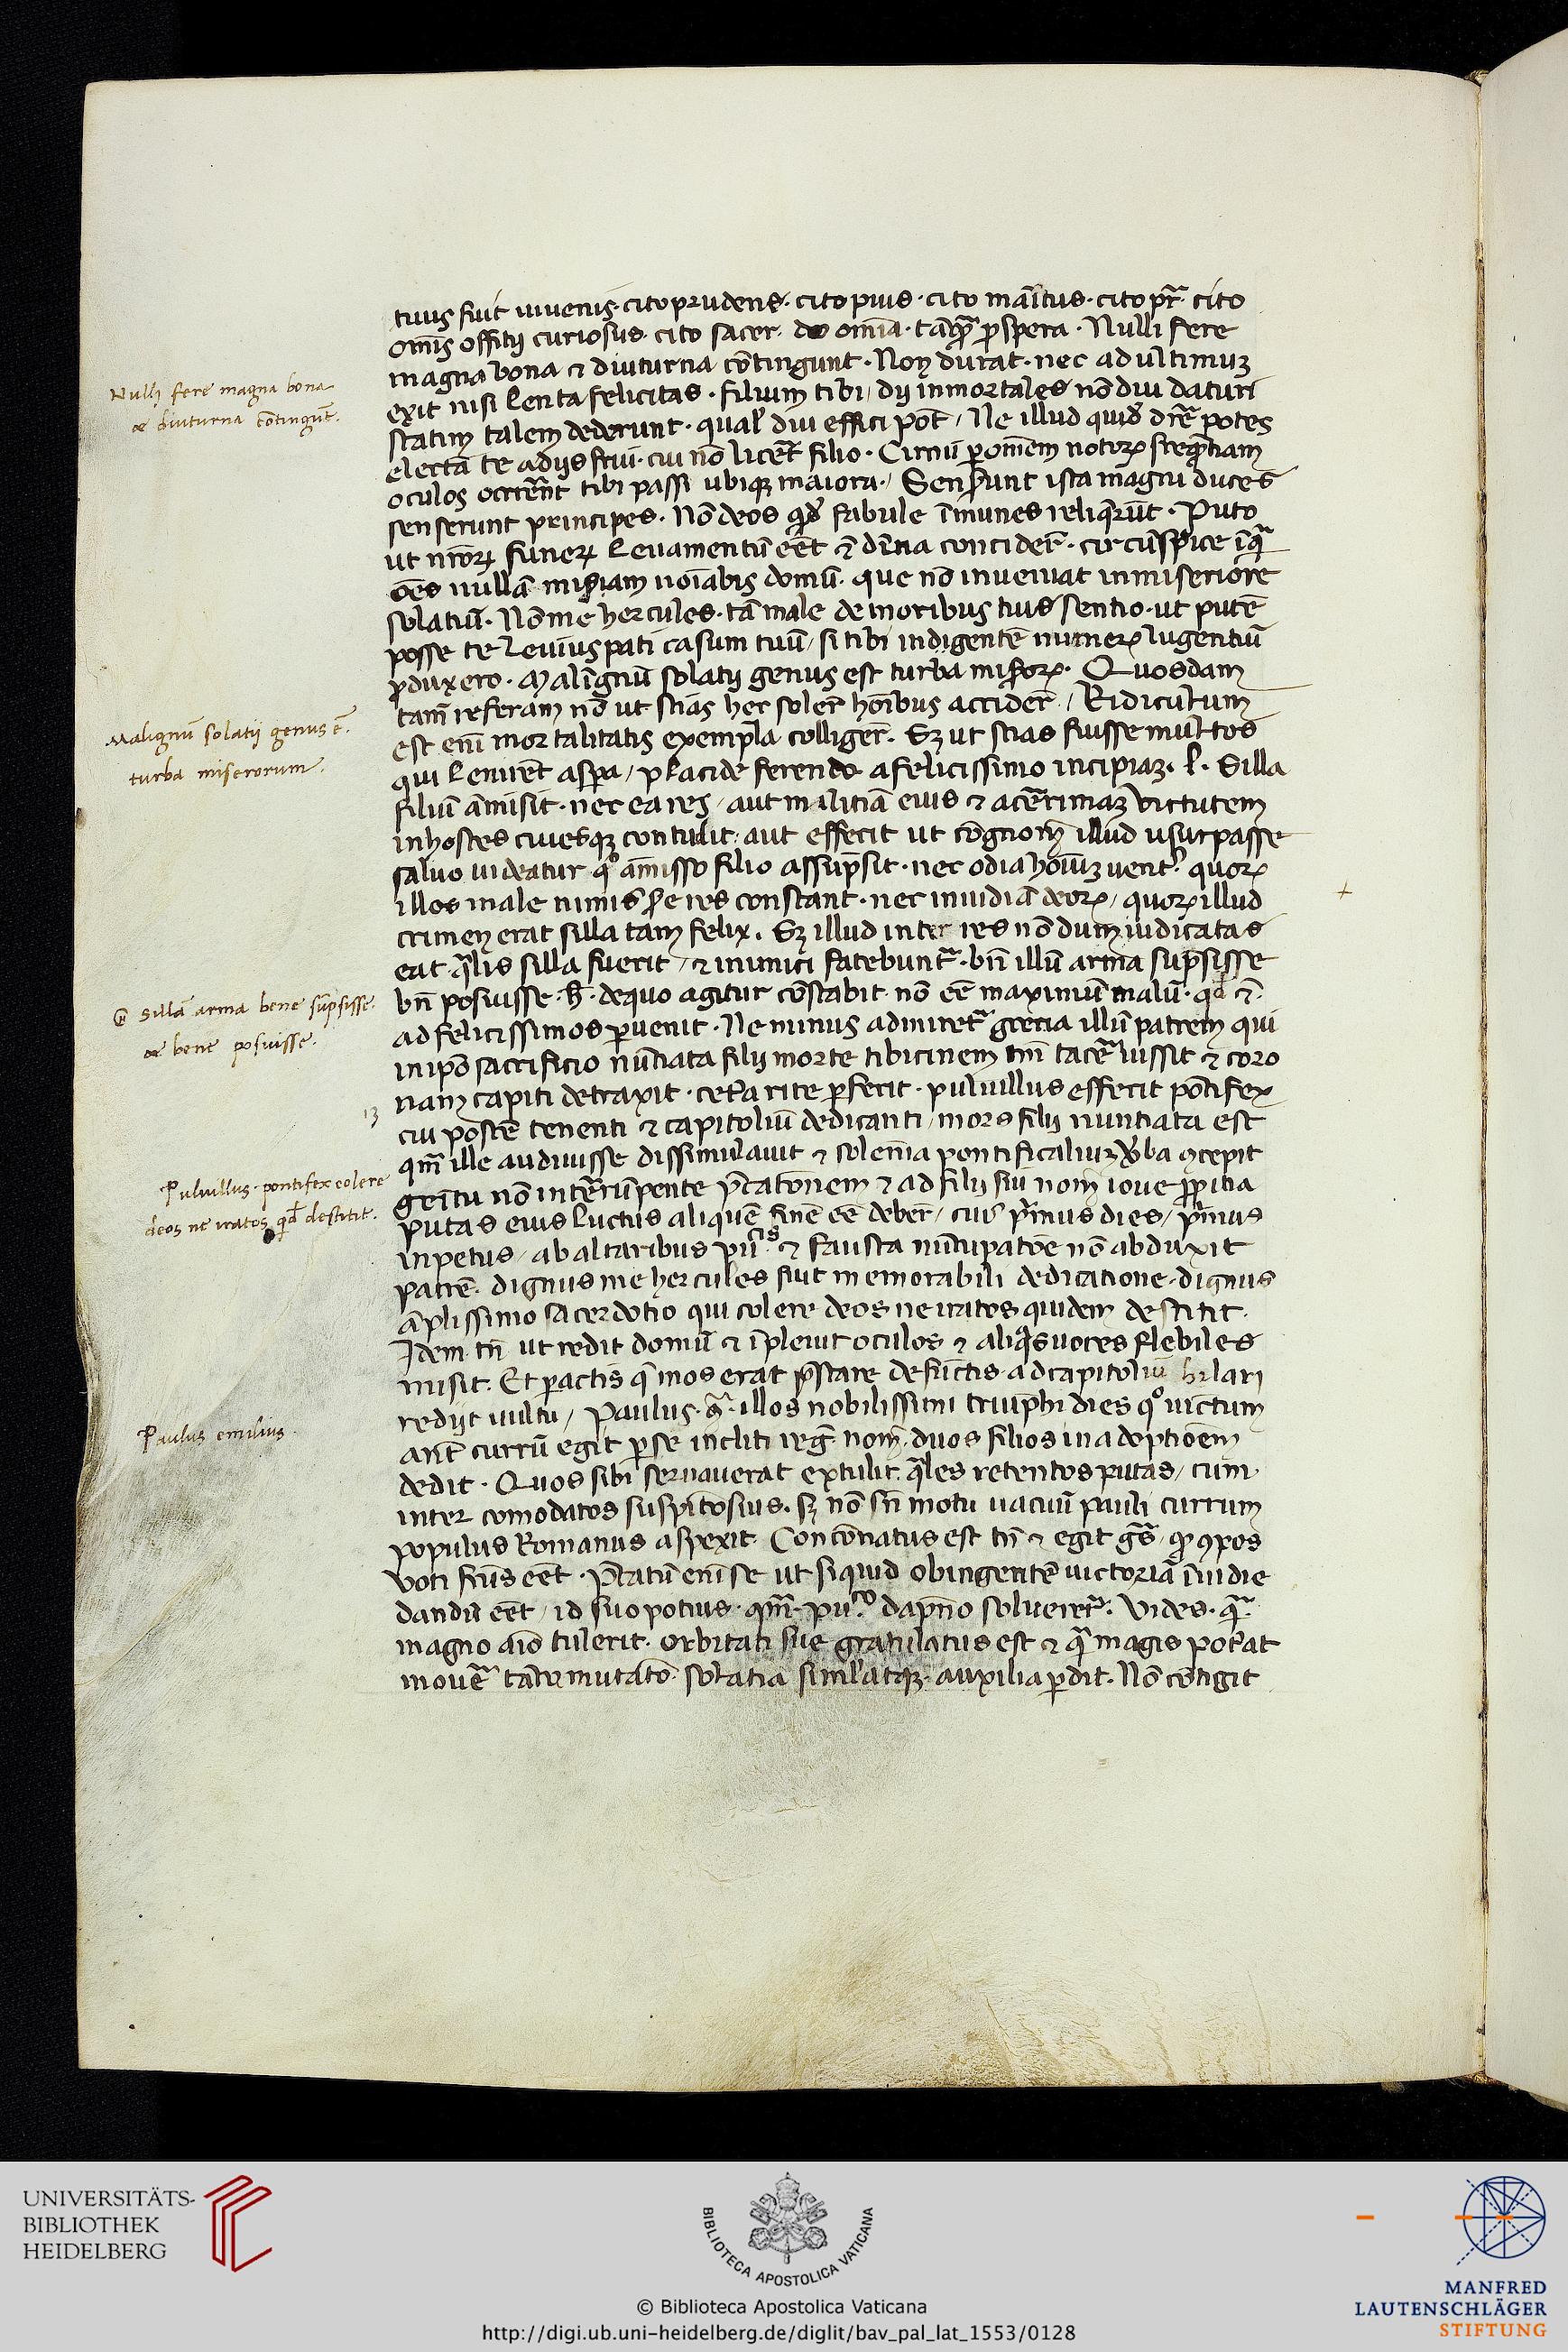 tuus fuit iuuenis· cito prudens· cito pius· cito marītus· cito pr̄· cito
om̄is offitij curiosus· cito sacer· do omīa· tāq̄ꝫ ꝓspera· Nulli fere
magna bona ⁊ diuturna cōtingunt· Non durat· nec ad ultimuꝫ
exit nisi lenta felicitas· filium tibi / dij inmortales nō diu daturi
statim talem dederunt· qual' diu effici pōt / Ne illud quid' dr̄e potes
electā te a dijs frui· cui nō licer̄et filio· Circū ꝑ omēm notoꝝ freq̄ntiam
oculos occerēnt tibi passi ubiqꝫ maiora· / Sensunt ista magni duces
senserunt principes· Nō deos qd' fabule īmunes reliq̄rūt· Puto
ut nr̄oꝝ funeꝝ leuamentū eēt ⁊ diīna concider̄· circūspice īq̄
oēs nullā miseriam noīabis domū· que nō inueniat in miseriore
solatiū· Nō me hercules· tā male de moribus tuis sentio· ut putē
posse te leuius pati casum tuū / si tibi indigentē numeꝝ lugentiū
ꝓduxero· Malīgnū solatij genus est turba miseroꝝ· Quosdam
tam̄ referam nō ut scias hec soler̄ hoībus accider̄ / Ridiculum
est enī mortalitatis exempla colliger̄· Sꝫ ut scias fuisse multos
qui lenirēt aspa / placide ferendo a felicissimo incipiaꝫ· l· Silla
filiū āmisit· nec ea res / aut militiā eius ⁊ acērrimaꝫ uirtutem
in hostes ciuesqꝫ contudit· aut effecit ut cōgnom̄ illud usurpasse
saluo uideatur qͦ āmisso filio assūpsit· nec odia hoīuꝫ uerit' quoꝝ
illos male nimis se res constant· nec inuidiā deoꝝ / quoꝝ illud
crimen erat silla tam felix· Sꝫ illud inter res nō dum iudicatas
eat q̄lis silla fuerit / ⁊ inimici fatebunt̄· bn̄ illū arma sūpsisse
bn̄ posuisse· h̄· de quo agitur cōstabit nō eē maximū malū· qd̄ ⁊
ad felicissimos ꝑuenit· Ne minus admiret̄ grecia illū patrem qui
in ipō sacrificio nūtiata filij morte tibicinem tm̄ tacēr̄ iussit ⁊ coro
nam capiti detraxit· cet'a rite ꝑfecit· puluillus effecit pōtifex
cui postē tenenti ⁊ capitoliū dedicanti / mors filij nuntiata est
qm̄ ille audiuisse dissimulauit ⁊ solenīa pontificaliuꝫ uerba ꝯcepit
geītu nō intērūpente p̄catōnem ⁊ ad filij sui nom̄ ioue ꝓpitia
putas eius luctus aliquē finē eē deber̄ / cui' p̄imus dies / p̄imus
inpetus / ab altaribus pūcis ⁊ fausta nūcupatōe nō abduxit
patrē· dignus me hercules fuit memorabili dedicatione· dignus
āplissimo sacerdotio qui colere deos ne iratos quidem destitit·
Idem tn̄ ut redit domū ⁊ īpleuit oculos ⁊ aliq̄s uoces flebiles
misit· Et ꝑactis q̄ mos erat p̄stare defūctis· ad capitoliū hilari
redijt uultu / Paulus· ꝗ· illos nobilissimi triūphi dies qͦ uictum
ant̄ currū egit ꝑse incliti reḡ nom̄· duos filios in adoptiōem
dedit· Quos sibi seruauerat extulit· q̄les retentos putas / cum
inter comodatos suspītosius· sꝫ nō sn̄ motu uacuū pauli currum
populus Romanus aspexit· Concōnatus est tn̄ ⁊ egit gr̄s· ꝙ ꝯpos
uoti fc̄us eēt· p̄catū enī se ut si quid ob ingentē uictoriā īuidie
dandū eēt / id suo potius· qm̄· puᵇˡᶜᵒ dapno soluerer̄· Vides· q̄·
magno aīo tulerit· orbitati sue gratulatus est ⁊ q̄ magis pot'at
mouēr̄ tāta mutatō· solatia simul atqꝫ· auxilia ꝑdit· Nō cōtigit
Nulli fere magna bona
⁊ diuturna cōtingūt·
Malignū solatij genus ē·
turba miserorum·
Sillā arma bene sūpsisse·
⁊ bene posuisse·
13
Puluillus· pontifex colere
deos ne iratos qd̄ destitit·
Paulus emilius·
+
UNIVERSITÄTS-
BIBLIOTHEK
HEIDELBERG
BIBLIOTECA APOSTOLICA VATICANA
© Biblioteca Apostolica Vaticana
http://digi.ub.uni-heidelberg.de/diglit/bav_pal_lat_1553/0128
MANFRED
LAUTENSCHLÄGER
STIFTUNG